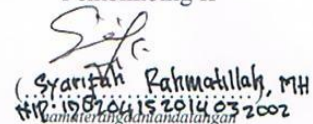 ( Syarifah Rahmatillah, MH
NIP: 198204152014032002
namaterangdantandatangan